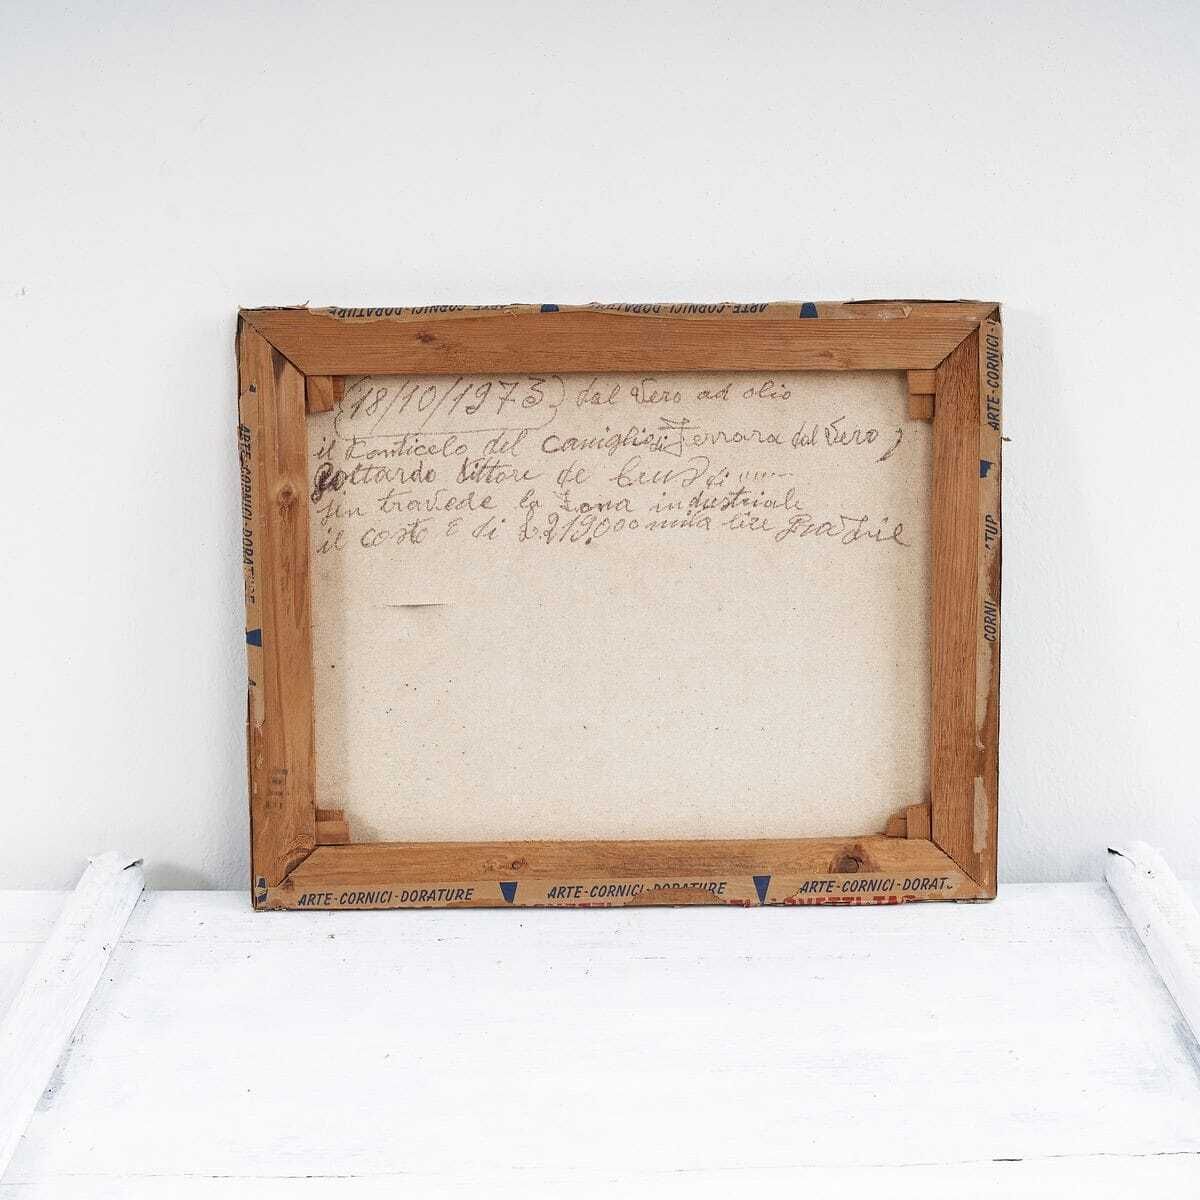 ARTE-CORNICI-DORATURE
ARTE-CORNICI-DORATURE
ARTE-CORNICI-DORATURE
(18/10/1973) dal vero ad olio
il Ponticelo del caniglio di Ferrara dal vero
Gottardo Vittore de
sin travede la Zona industriale
il costo è di £219.000 mila lire
ARTE-CORNICI-DORATURE
ARTE-CORNICI
CORNI
ARTE-CORNICI-DORATURE
ARTE-CORNICI-DORATURE
ARTE-CORNICI-DORAT